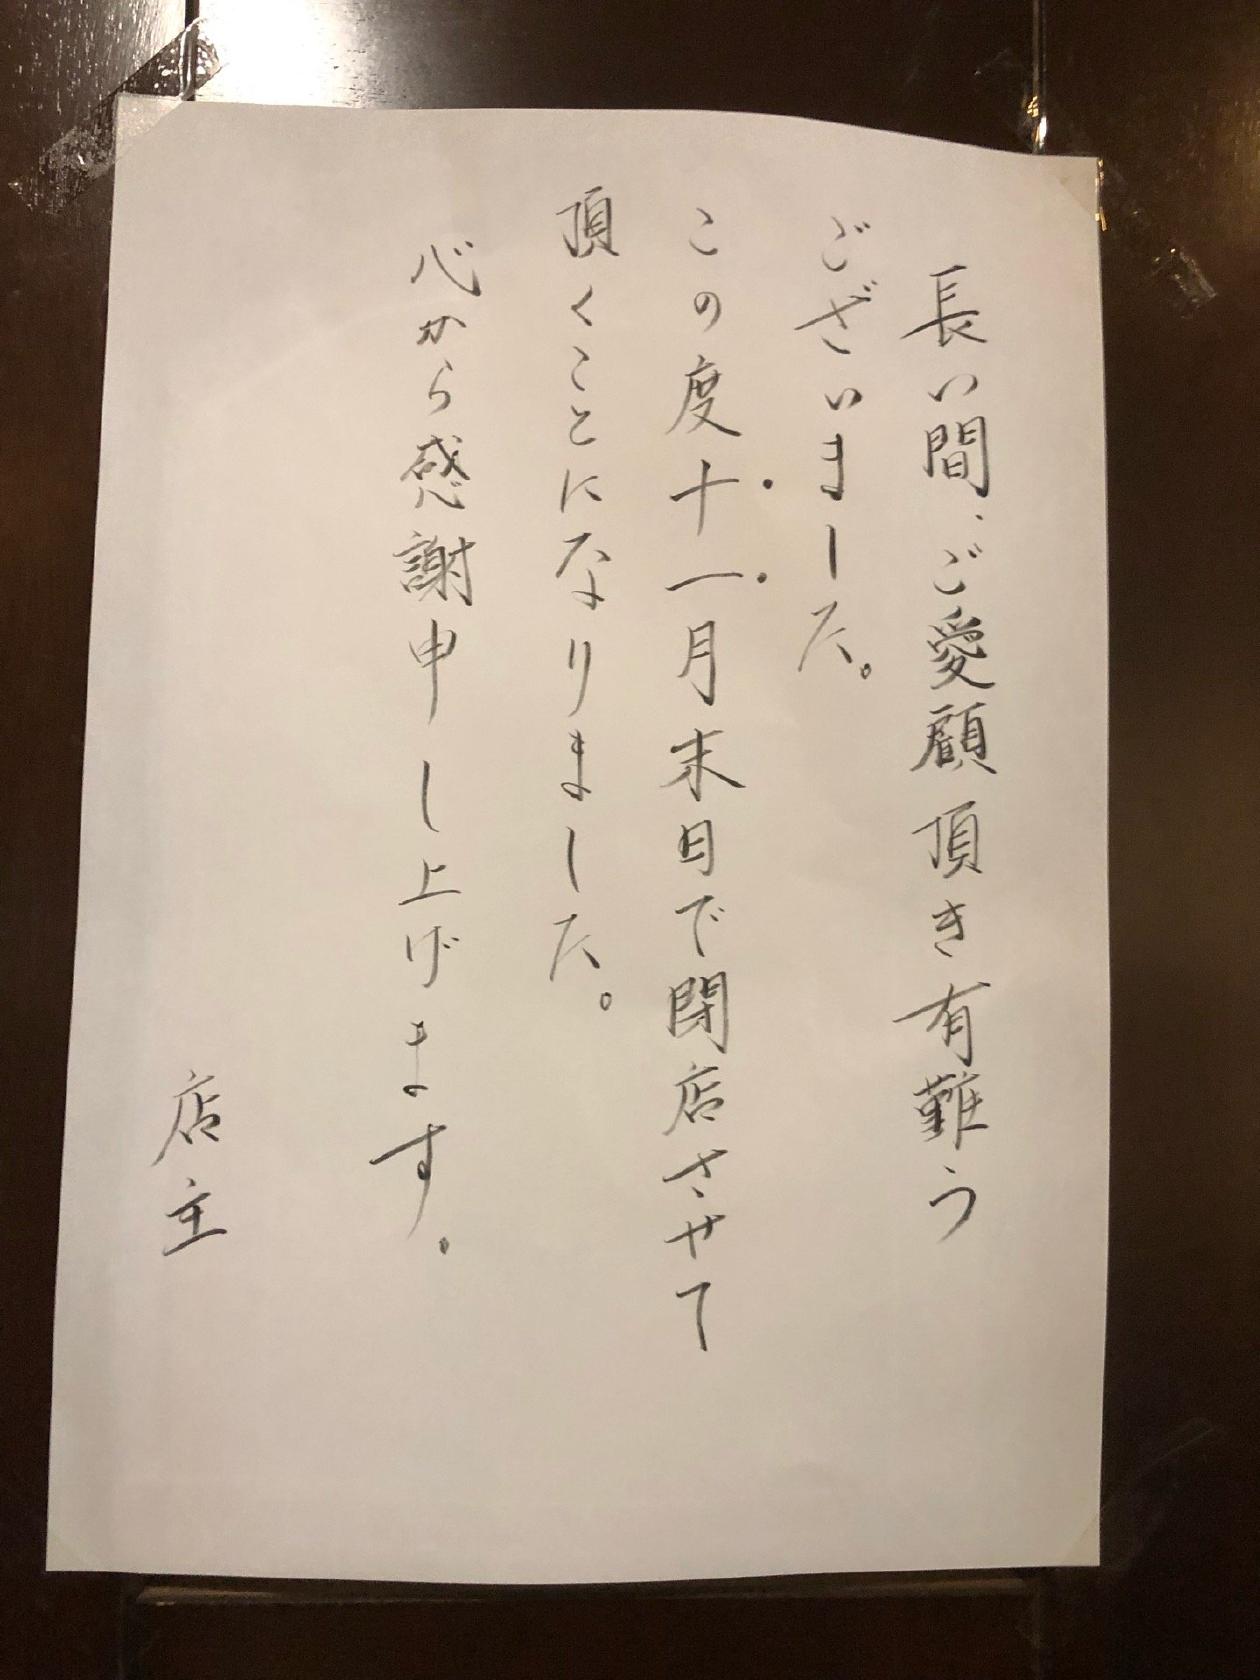 長い間、ご愛顧頂き有難う
ございました。
この度十一月末日で閉店させて
頂くことになりました。
心から感謝申し上げます。
店主